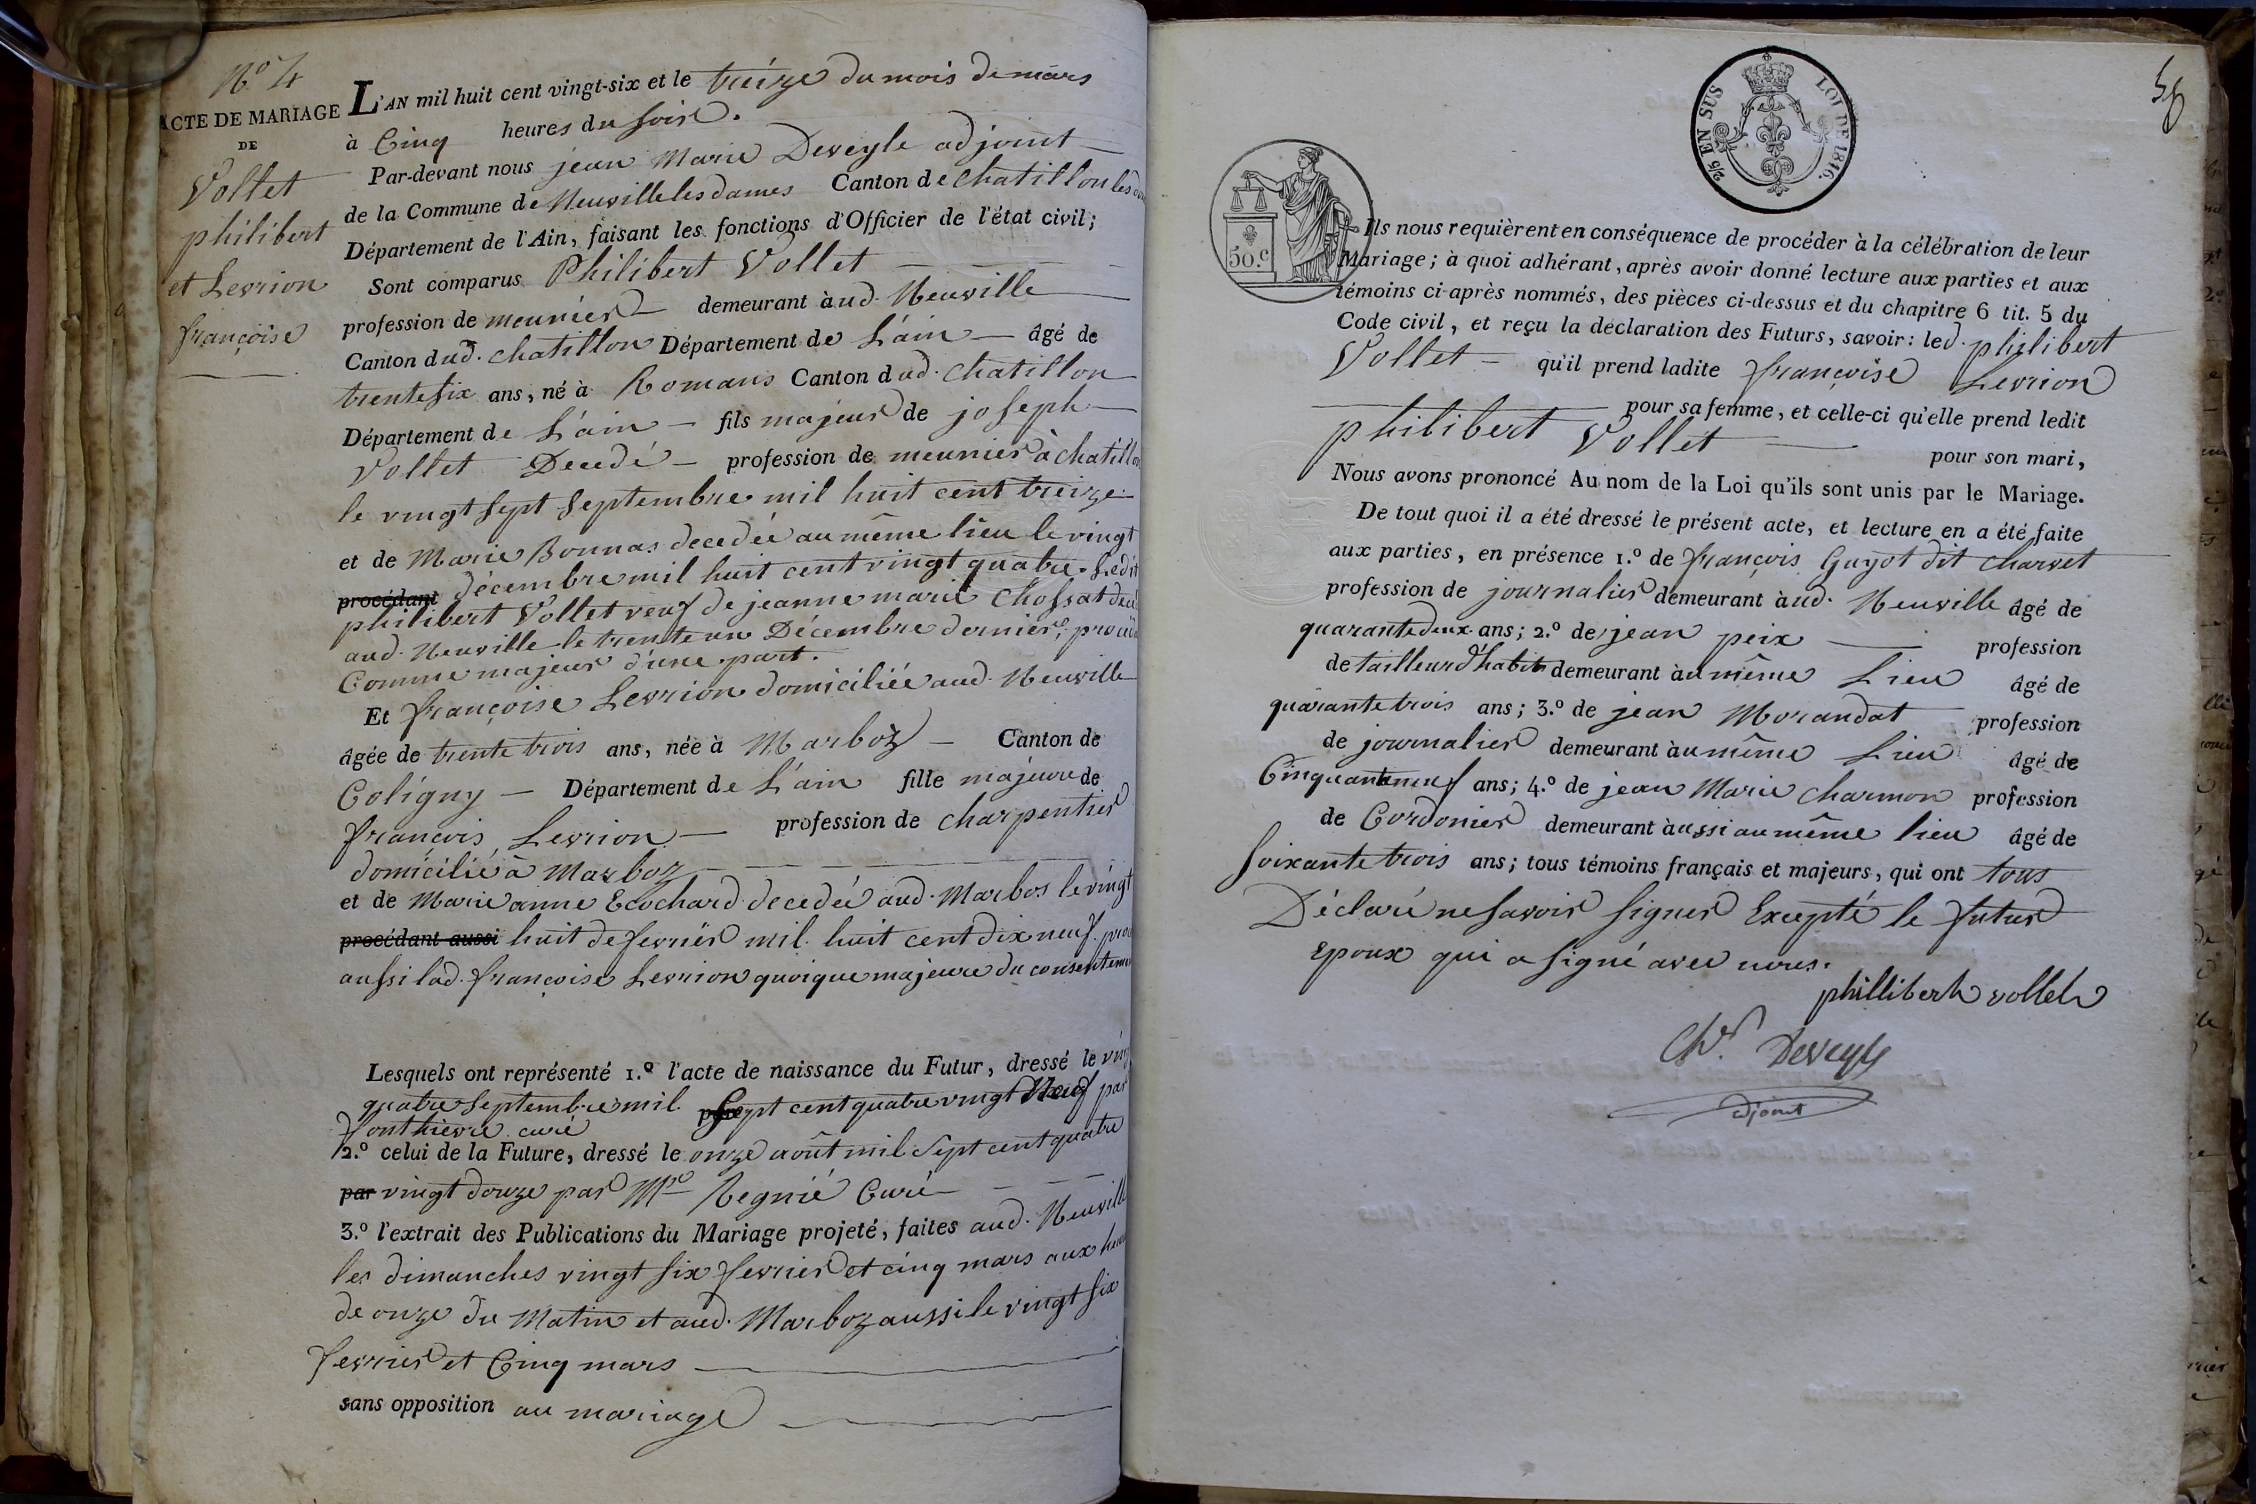 N.º 4
ACTE DE MARIAGE
DE
Vollet
philibert
et Levrion
françoise
L'AN mil huit cent vingt-six et le treize du mois de mars
à Cinq heures du soir.
Par-devant nous jean Marie Deveyle adjoint
de la Commune de Neuville les dames Canton de chatillon les
Département de l'Ain, faisant les fonctions d'Officier de l'état civil;
Sont comparus Philibert Vollet
profession de meunier demeurant à ud. Neuville
Canton dud. chatillon Département de L'ain âgé de
trente six ans, né à Romans Canton dud. chatillon
Département de L'ain fils majeur de joseph
Vollet Decedé profession de meunier à chatillon
le vingt sept septembre mil huit cent treize
et de Marie Bonnas decedée au même lieu le vingt
procédant décembre mil huit cent vingt quatre. Ledit
philibert Vollet veuf de jeanne marie Chossat
aud. Neuville le trente un Décembre dernier,
Comme majeur d'une part.
Et françoise Levrion domiciliée aud. Neuville
âgée de trente trois ans, née à Marboz Canton de
Coligny Département de L'ain fille majeure de
françois Levrion profession de charpentier
domicilié à Marboz
et de Marie anne Ecochard decedée aud. Marbos le vingt
procédant aussi huit de fevrier mil huit cent dix neuf.
aussi lad. françoise Levrion quoique majeure du
Lesquels ont représenté 1.º l'acte de naissance du Futur, dressé le
quatre septembre mil sept cent quatre vingt Neuf par
fonthievre curé
2.º celui de la Future, dressé le onze août mil sept cent quatre
par vingt douze par Regnié Curé
3.º l'extrait des Publications du Mariage projeté, faites aud. Neuville
les dimanches vingt six fevrier et cinq mars aux
de onze du Matin et aud. Marboz aussi le vingt six
fevrier et Cinq mars
sans opposition au mariage
58
2/5 EN SUS LOI DE 1816.
50.c
Ils nous requièrent en conséquence de procéder à la célébration de leur
Mariage; à quoi adhérant, après avoir donné lecture aux parties et aux
témoins ci-après nommés, des pièces ci-dessus et du chapitre 6 tit. 5 du
Code civil, et reçu la déclaration des Futurs, savoir: led. philibert
Vollet qu'il prend ladite françoise Levrion
pour sa femme, et celle-ci qu'elle prend ledit
philibert Vollet pour son mari,
Nous avons prononcé Au nom de la Loi qu'ils sont unis par le Mariage.
De tout quoi il a été dressé le présent acte, et lecture en a été faite
aux parties, en présence 1.º de françois Guyot dit charvet
profession de journalier demeurant à ud. Neuville âgé de
quarante deux ans; 2.º de jean peix profession
de tailleur d'habits demeurant à u même Lieu âgé de
quarante trois ans; 3.º de jean Morandat profession
de journalier demeurant à u même Lieu âgé de
Cinquante neuf ans; 4.º de jean Marie charmon profession
de Cordonier demeurant à ussi au même lieu âgé de
soixante trois ans; tous témoins français et majeurs, qui ont tous
Déclaré ne savoir signer Excepté le futur
epoux qui a signé avec nous.
phillibert vollet
Ch.er Deveyle
adjoint